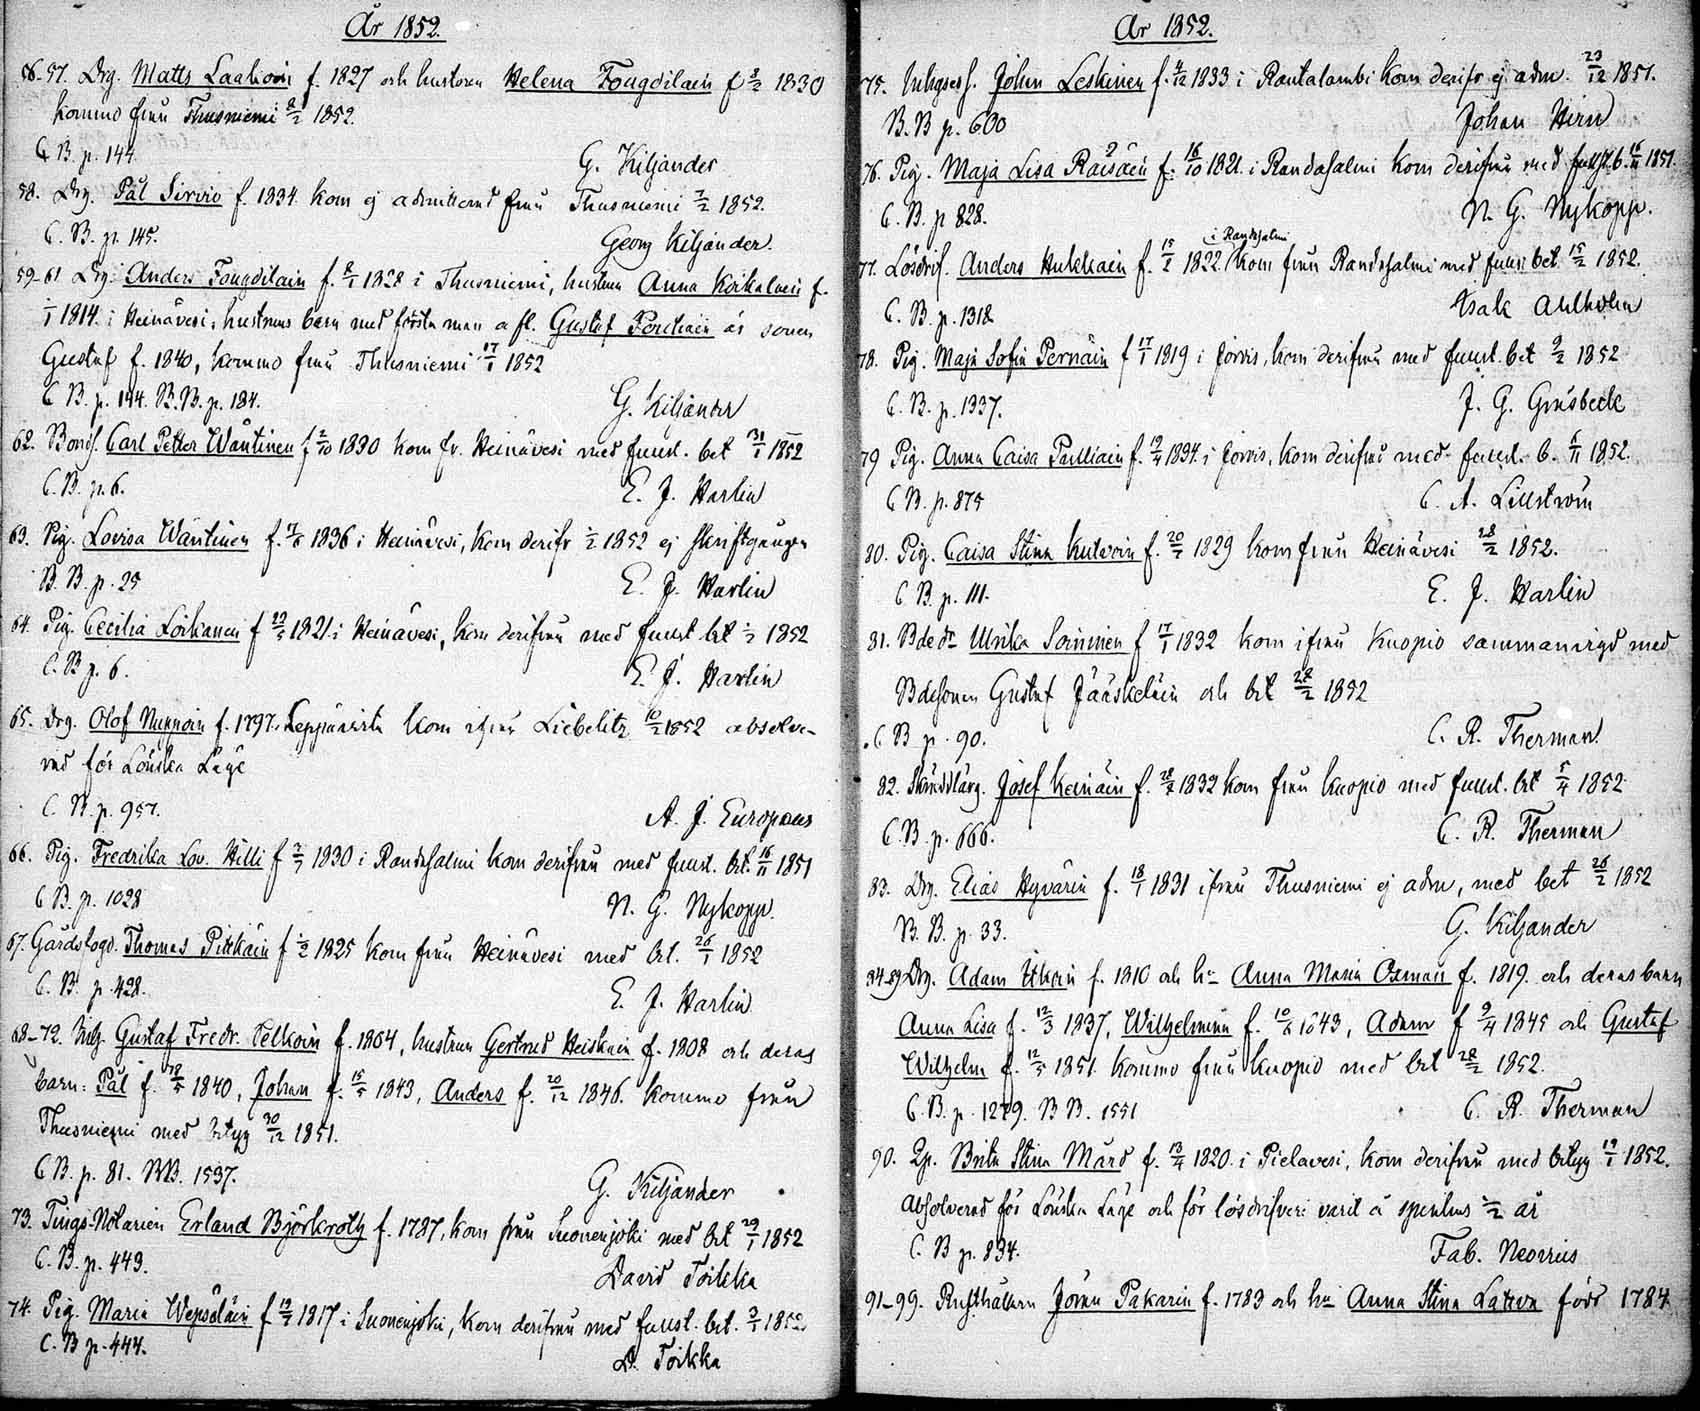 År 1852.
56-57. Drg. Matts Laakoin f. 1827 och hustrun Helena Fougdilain f 8/2 1830
kommo från Thusniemi 8/2 1852.
C B. p. 144.
G. Kiljander
58. Drg. Pål Sirviö f. 1834 kom ej admitterad från Thusniemi 7/2 1852.
C. B. p. 145.
Georg Kiljander.
59-61 Drg. Anders Fougdilain f. 8/1 1828 i Thusniemi, hustrun Anna Koikalain f.
1/1 1814. i Heinävesi, hustruns barn med första man afl. Gustaf är sonen
Gustaf f. 1840, kommo från Thusniemi 17/1 1852
C B. p. 144. B.B. p. 184.
G. Kiljander
62. Bonds. Carl Petter Wäntinen f 2/10 1830 kom fr. Heinävesi med funct. bet 31/1 1852
C. B. p. 6.
E. J. Harlin
63. Pig. Lovisa Wäntinen f. 7/6 1836 i Heinävesi, kom derifr 1/2 1852 ej skriftgången
B. B. p. 25
E. J. Harlin
64. Pig. Cecilia Loikanen f 1821 i Heinävesi, kom derifrån med funct bet 1/2 1852
C. B p. 6.
E. J. Harlin
65. Drg. Olof f. 1797. Leppävirta kom ifrån Liebelitz 10/2 1852 absolve-
rad för Lönska Läge
C. B. p. 957.
A. J. Europaeus
66. Pig. Fredrika Lov. Hilli f 7/7 1830 i Randasalmi kom derifrån med funct. bet. 16/11 1851
C B. p. 1028
N. G. Nykopp.
67. Gårdsfogd. Thomas Pitkäin f 1/2 1825 kom från Heinävesi med bet. 26/1 1852
C. B. p. 428.
E. J. Harlin
68-72. Gustaf Fredr. Telkoin f. 1804, hustrun Gertrud Heiskain f. 1808 och deras
barn: Pål f. 28/5 1840, Johan f. 15/5 1843, Anders f. 20/12 1846. kommo från
Thusniemi med betyg 30/12 1851.
C B. p. 81. BB. 1537.
G. Kiljander
73. Tings-Notarien Erland Björkroth f. 1787, kom från Suonenjoki med bet 29/1 1852
C. B. p. 443.
David Toikka
74. Pig. Maria Wepsäläin f 19/7 1817 i Suonenjoki, kom derifrån med funct. bet. 3/1 1852
C. B p. 444.
D. Toikka
År 1852.
75. Inhyses s. Johan Leskinen f. 4/12 1833 i Rautalambi kom derifr ej adm. 23/12 1851.
B. B p. 600
Johan Hirn
76. Pig. Maja Lisa Räisäin f. 16/10 1821. i Randasalmi kom derifrån med b. 16/11 1851.
C. B. p 828.
N. G. Nykopp.
77. Lösdrif. Anders Hukkain f. 15/2 1822 i Randasalmi kom från Randasalmi med funct bet 15/2 1852.
C. B. p. 1318
Isak Ahlholm
78. Pig. Maja Sofia Pernäin f 17/1 1819 i Jorvis, kom derifrån med funct. bet 9/2 1852
C. B. p. 1337.
J. G. Gråsbeck
79 Pig. Anna Caisa Pulliain f. 19/4 1834. i Jorvis, kom derifrån med funct. b. 6/11 1852.
C B. p. 875
C. A. Lillström
80. Pig. Caisa Stina Kutvoin f. 20/7 1829 kom från Heinävesi 28/2 1852.
C B. p. 111.
E. J. Harlin
81. Bde dr Ulrika Soininen f 17/1 1832 kom ifrån Kuopio sammanvigd med
Bdesonen Gustaf Jääskeläin och bet 28/2 1852
C B p. 90.
C. R. Therman.
82. Skräddlärg. Josef Keinäin f. 28/2 1832 kom från Kuopio med funct. bet 5/4 1852
C. B. p. 666.
C. R. Therman
83. Drg. Elias Hyvärin f. 18/1 1831 ifrån Thusniemi ej adm, med bet 26/2 1852
B. B. p. 33.
G. Kiljander
84-89 Drg. Adam f. 1810 och hu Anna Maria Osman f. 1819. och deras barn
Anna Lisa f. 12/3 1837, Wilhelmina f. 10/6 1843, Adam f 9/4 1845 och Gustaf
Wilhelm f. 12/5 1851. kommo från Kuopio med bet 28/2 1852.
C. B. p. 1279. B B. 1551
C. R. Therman
90. Qp. Brita Stina Mård f. 13/4 1820. i Pielavesi, kom derifrån med betyg 19/1 1852.
absolverad för Lönska Läge och för lösdrifveri varit å spinhus 1/2 år
C. B p. 834.
Fab. Neovius
91-99. Rusthållarn Jöran Pakarin f. 1783 och hu Anna Stina Latva född 1784